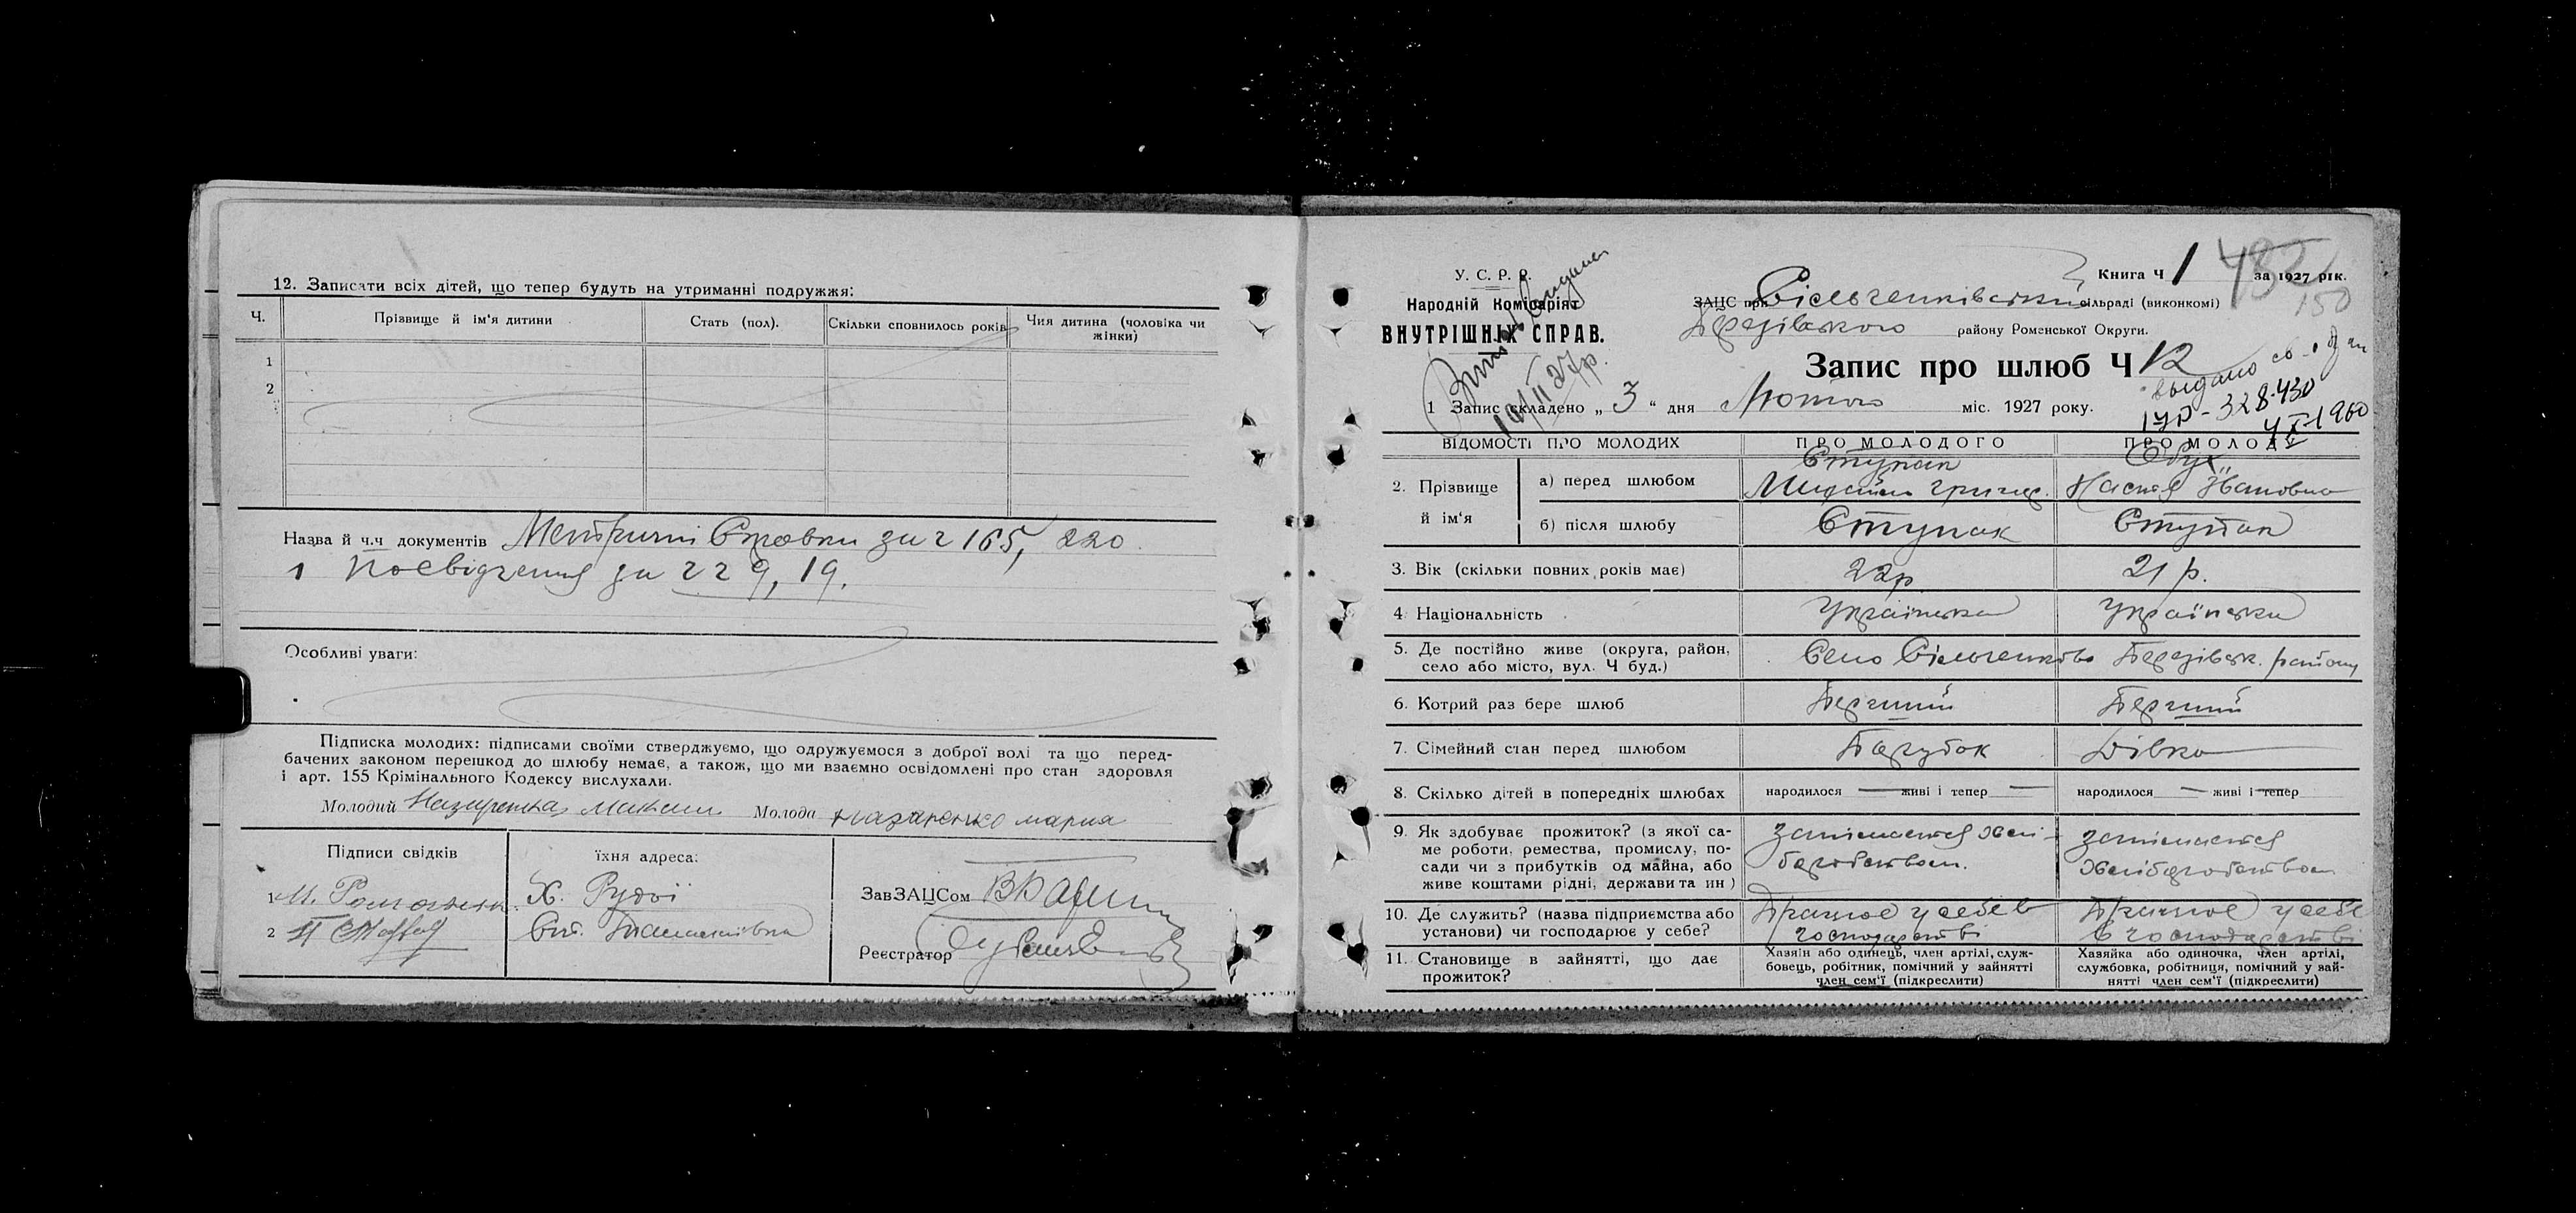 12. Записати всіх дітей, що тепер будуть на утриманні подружжя:
Ч. Прізвище й ім'я дитини Стать (пол). Скільки сповнилось років Чия дитина (чоловіка чи жінки)
1
2
Назва й ч.ч документів Метричні Справки за ч 165, 220.
1 Посвідчення за ч ч 9, 19.
Особливі уваги:
Підписка молодих: підписами своїми стверджуємо, що одружуємося з доброї волі та що перед-
бачених законом перешкод до шлюбу немає, а також, що ми взаємно освідомлені про стан здоровля
і арт. 155 Крімінального Кодексу вислухали.
Молодий Назаренко Молода назаренко мария
Підписи свідків їхня адреса:
1 И. Х. Рудої
2 П
ЗавЗАЦСом
Реєстратор
У. С. Р. Р.
Народній Комісаріят
ВНУТРІШНІХ СПРАВ.
14/II 27р.
Книга Ч 1 за 1927 рік.
482
150
ЗАЦС при сільраді (виконкомі)
району Роменської Округи.
Запис про шлюб Ч 12
выдано св-
328430
1960
1 Запис складено „ 3 “ дня Лютого міс. 1927 року.
ВІДОМОСТІ ПРО МОЛОДИХ ПРО МОЛОДОГО ПРО МОЛОДУ
2. Прізвище й ім'я
а) перед шлюбом Ступак Обух Настя Івановна
б) після шлюбу Ступак Ступак
3. Вік (скільки повних років має) 22р 21 р.
4 Національність Українська Українська
5. Де постійно живе (округа, район,
село або місто, вул. Ч буд.) Село району
6. Котрий раз бере шлюб Перший Перший
7. Сімейний стан перед шлюбом Парубок Дівка
8. Скілько дітей в попередніх шлюбах народилося — живі і тепер — народилося — живі і тепер
9. Як здобуває прожиток? (з якої са-
ме роботи, ремества, промислу, по-
сади чи з прибутків од майна, або
живе коштами рідні, держави та ин)
Занімається хлі-
баробством.
занімается
хліборобством
10. Де служить? (назва підприємства або
установи) чи господарює у себе?
Працює у себе в
господарстві
Працює у себе
в господарстві
11. Становище в зайнятті, що дає
прожиток?
Хазяїн або одинець, член артілі, служ-
бовець, робітник, помічний у зайнятті
член сем'ї (підкреслити)
Хазяйка або одиночка, член артілі,
службовка, робітниця, помічний у зай-
нятті член сем'ї (підкреслити)